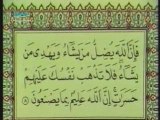 فَإِنَّ ٱللَّهَ يُضِلُّ مَن يَشَآءُ وَيَهْدِى مَن
يَشَآءُ ۖ فَلَا تَذْهَبْ نَفْسُكَ عَلَيْهِمْ
حَسَرَٰتٍ ۚ إِنَّ ٱللَّهَ عَلِيمٌۢ بِمَا يَصْنَعُونَ ٨